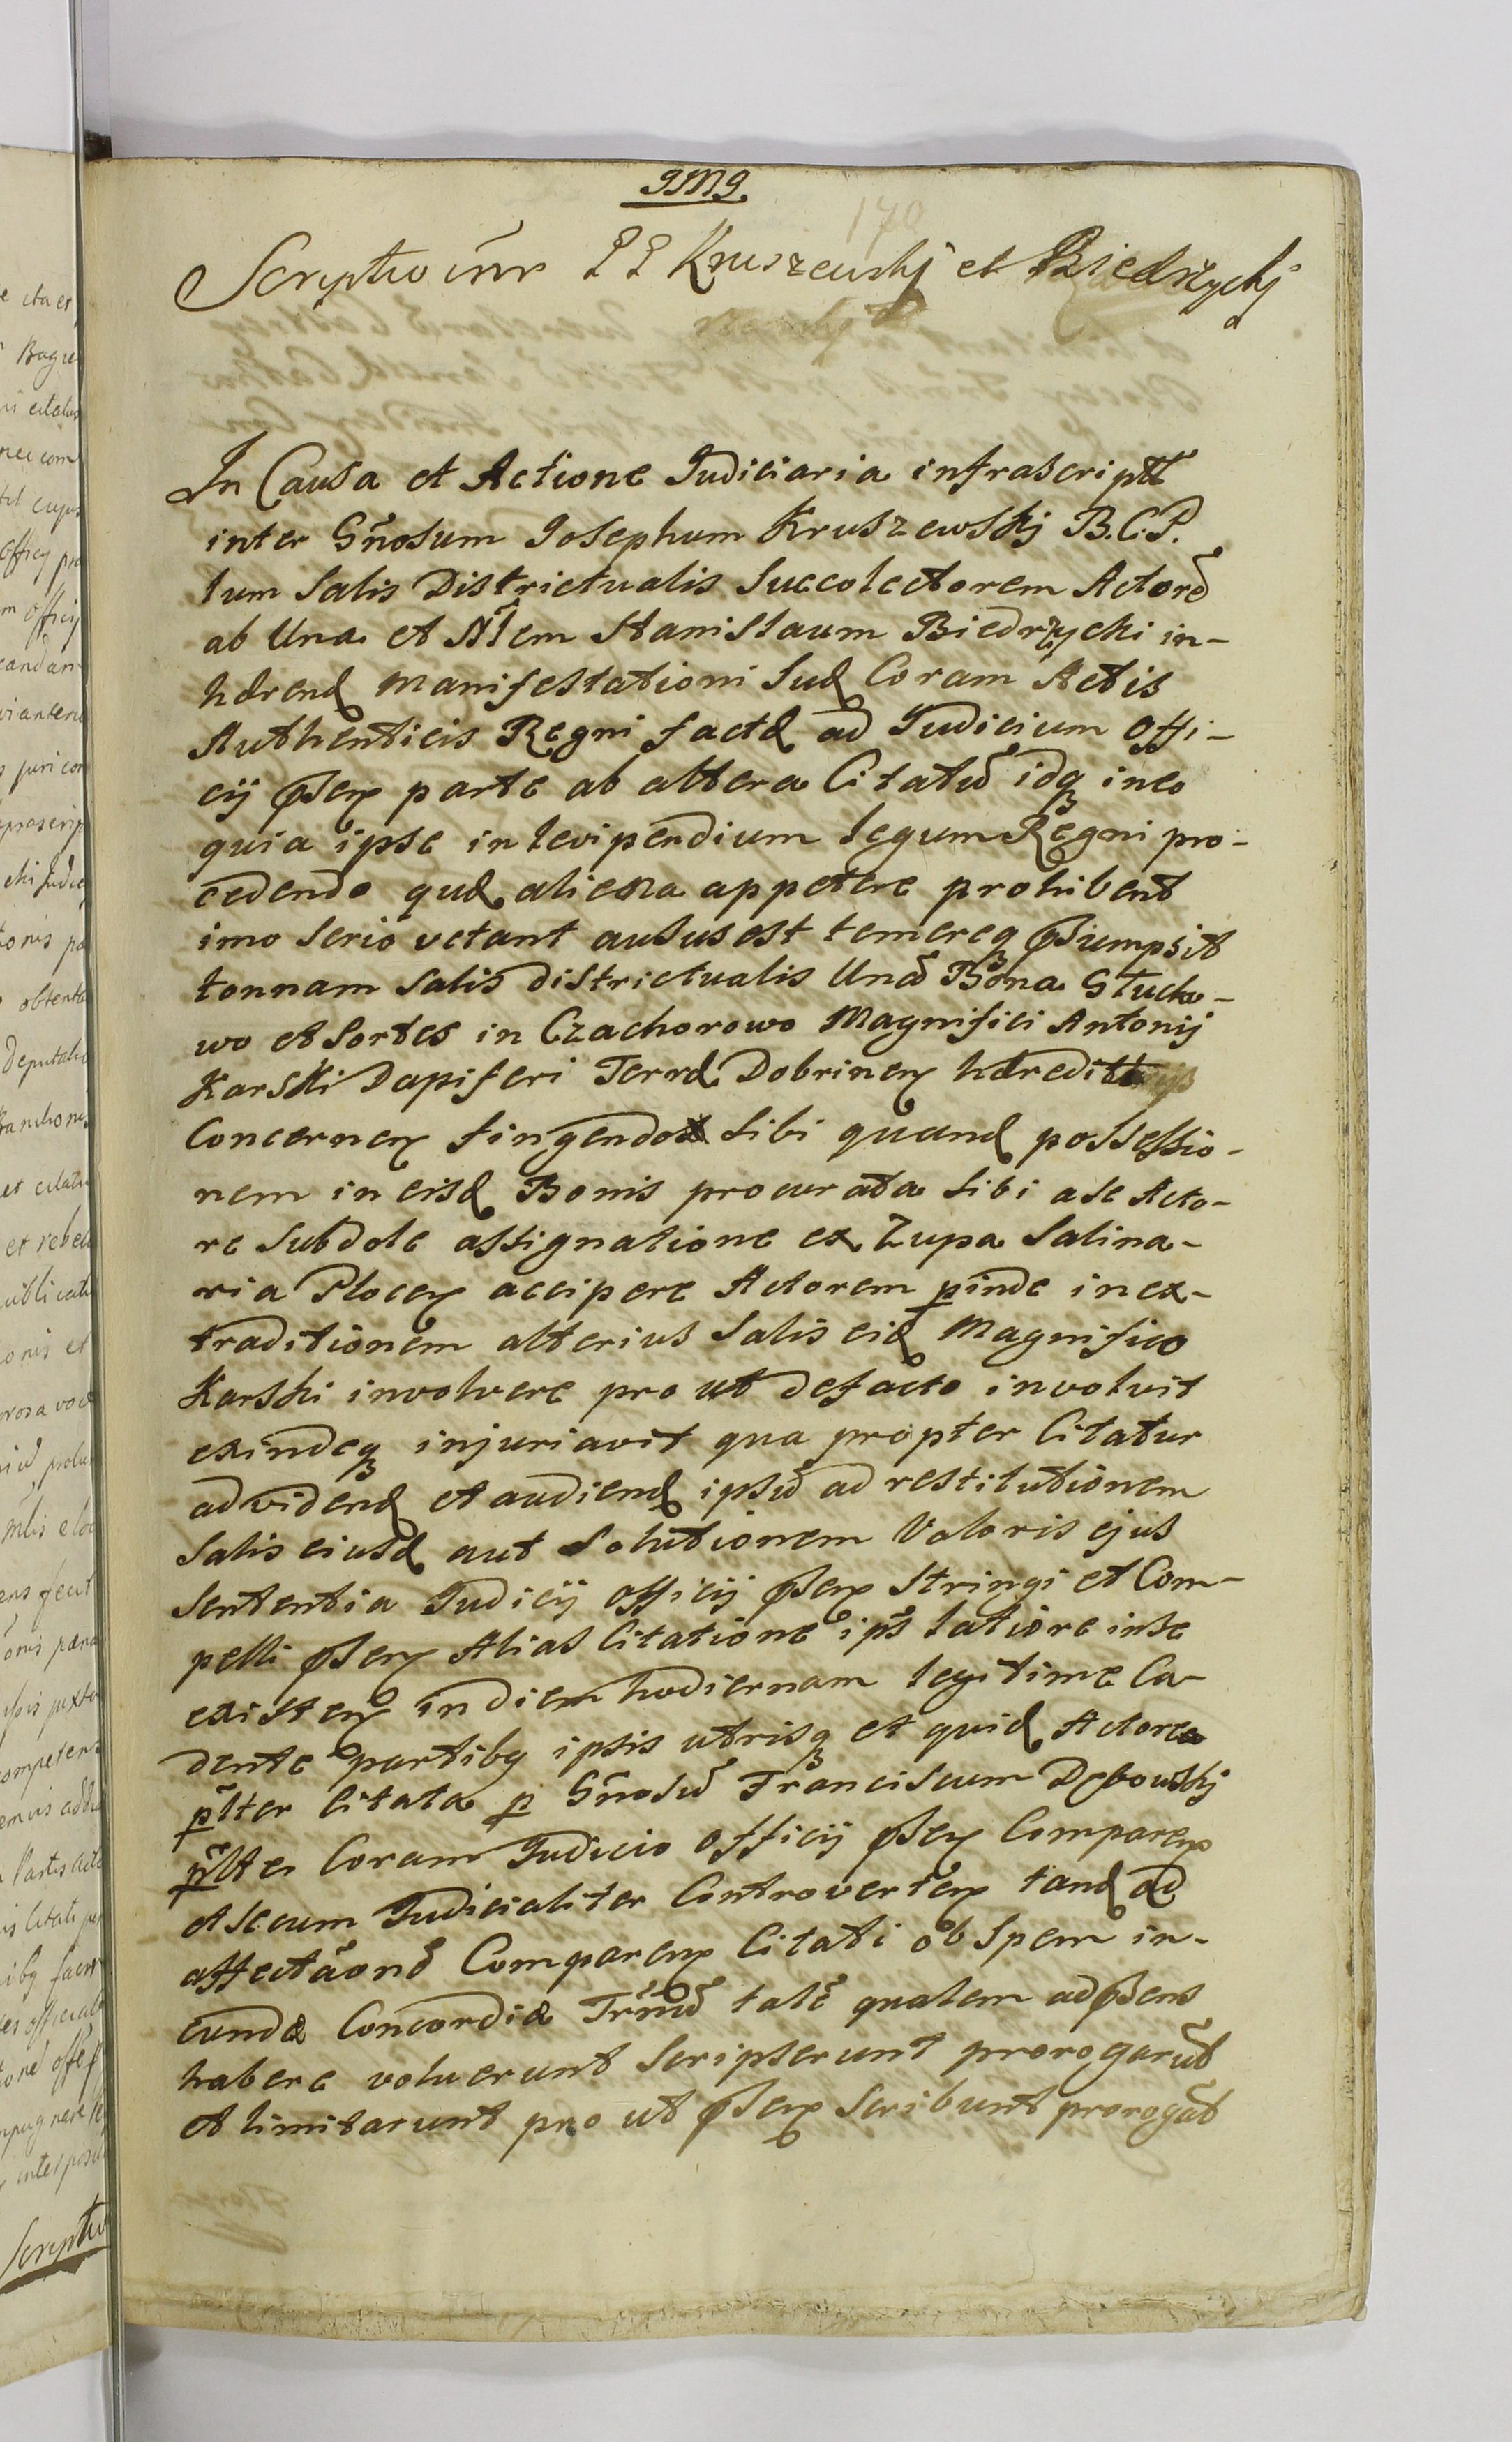 170
Scriptio inr PP Kruszewskj et Biedrzyckj
In Causa et Actione Judiciaria infrascriptt
inter Gñosum Josephum Kruszewskj B.C.P.
tum Salis Districtualis Succolectorem Actorē
ab Una et Nlem Stanislaum Biedrzycki in-
hærend manifestationi Suæ Coram Actis
Authenticis Regni factæ ad Judicium Offi-
cij pñsen parte ab altera Citatū idq ineo
quia ipse in levipendium legum Regni pro-
cedendo quæ aliena appetere prohibent
imo Serio vetant ausus est temereq pñsumpsit
tonnam Salis districtualis Unā Bona Stucho-
wo et Sortes in Czachorowo Magnifici Antonij
Karski Dapiferi Terræ Dobrinen hæreditt
Concernen fingendo Sibi quand possessio-
nem in eisd Bonis procurata Sibi a Se Acto-
re Subdole assignatione ex Zupa Salina-
ria Plocen accipere Actorem pinde in ex-
traditionem alterius Salis eid Magnifico
Karski involvere pro ut defacto involvit
exindeq injuriavit qua propter Citatur
ad vidend et audiend ipsū ad restitutionem
Salis eiusd aut Solutionem Valoris ejus
Sententia Judicij officij pñsen Stringi et Com-
pelli pñsen Alias Citatione ips latiore in Se
existen in diem hodiernam legitime Ca-
dente partiby ipsis utrisq et quid Actorea
plter Citata p Gñosū Franciscum Dębowskj
plter Coram Judicio officij pñsen Comparen
et Secum Judicialiter Controverten tand ad
affectãonē Comparen Citati ob Spem in-
eundæ Concordiæ Trmū talē qualem ad pñsens
habere voluerunt Scripserunt prorogarūt
et limitarunt pro ut pñsen Scribunt prorogāt